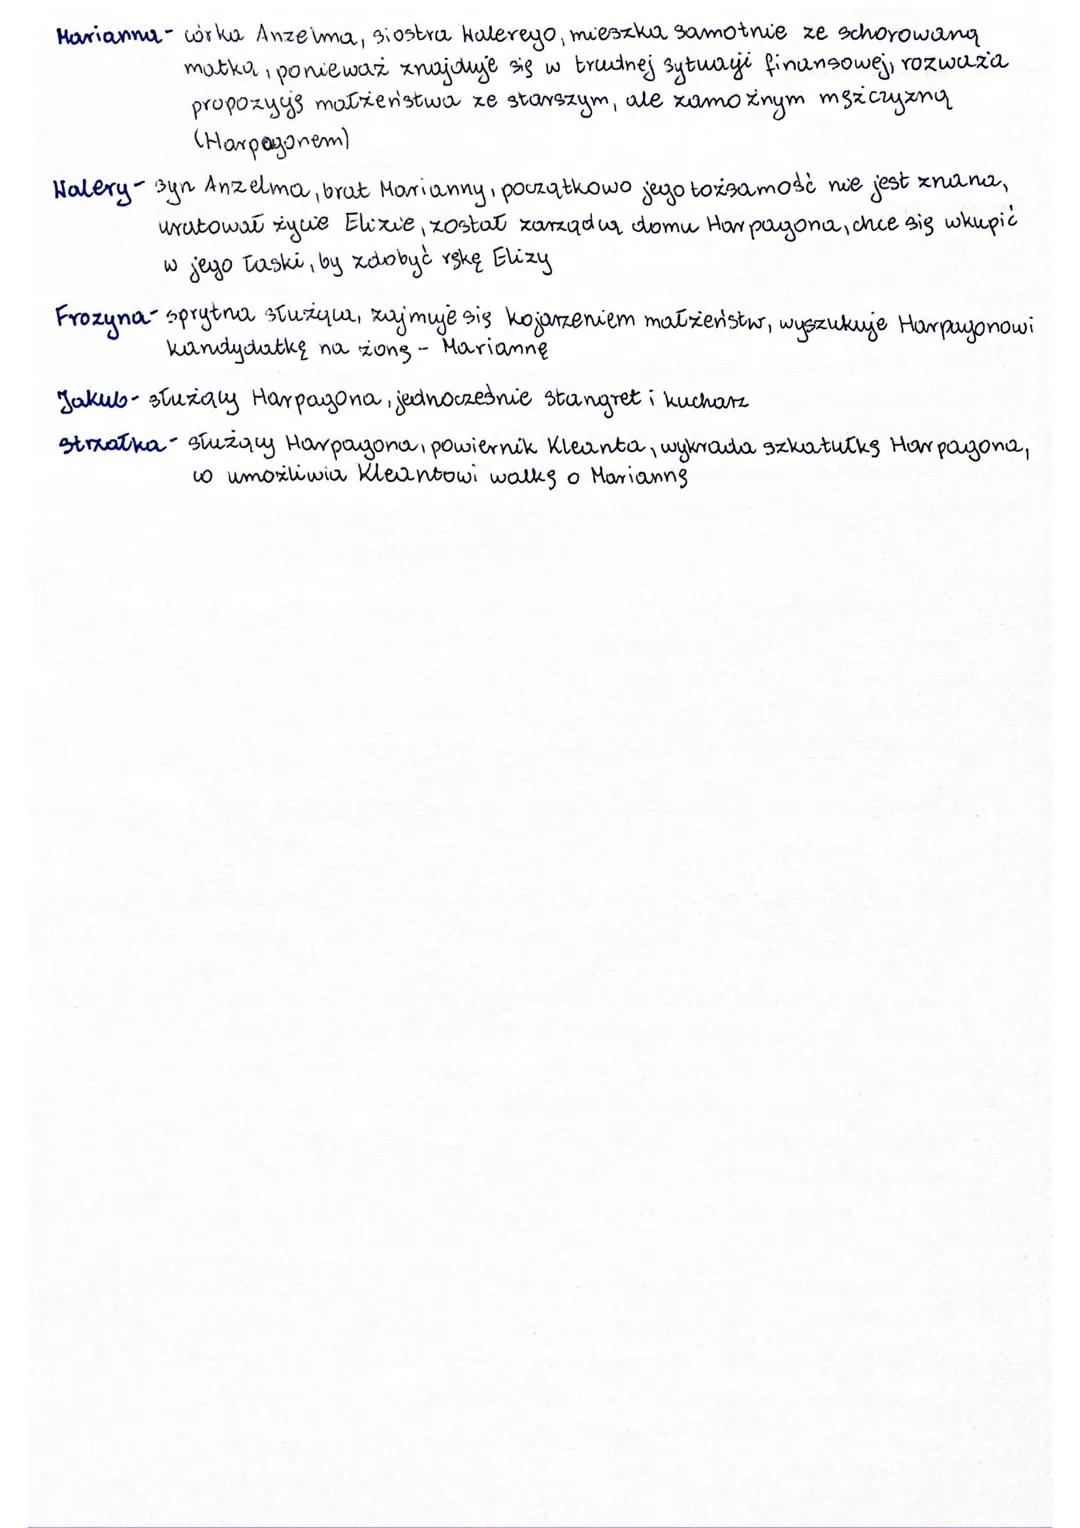 Marianna- córka Anzelma, siostra Walerego, mieszka samotnie ze schorowaną
matką, ponieważ znajduje się w trudnej sytuacji finansowej, rozważa
propozycję małżeństwa ze starszym, ale zamożnym mężczyzną
(Harpagonem)
Walery- syn Anzelma, brat Marianny, początkowo jego tożsamość nie jest znana,
uratował życie Elizie, został zarządcą domu Harpagona, chce się wkupić
w jego łaski, by zdobyć rękę Elizy
Frozyna- sprytna służąca, zajmuje się kojarzeniem małżeństw, wyszukuje Harpagonowi
kandydatkę na żonę - Mariannę
Jakub- służący Harpagona, jednocześnie stangret i kucharz
Strzałka- służący Harpagona, powiernik Kleanta, wykrada szkatułkę Harpagona,
co umożliwia Kleantowi walkę o Mariannę